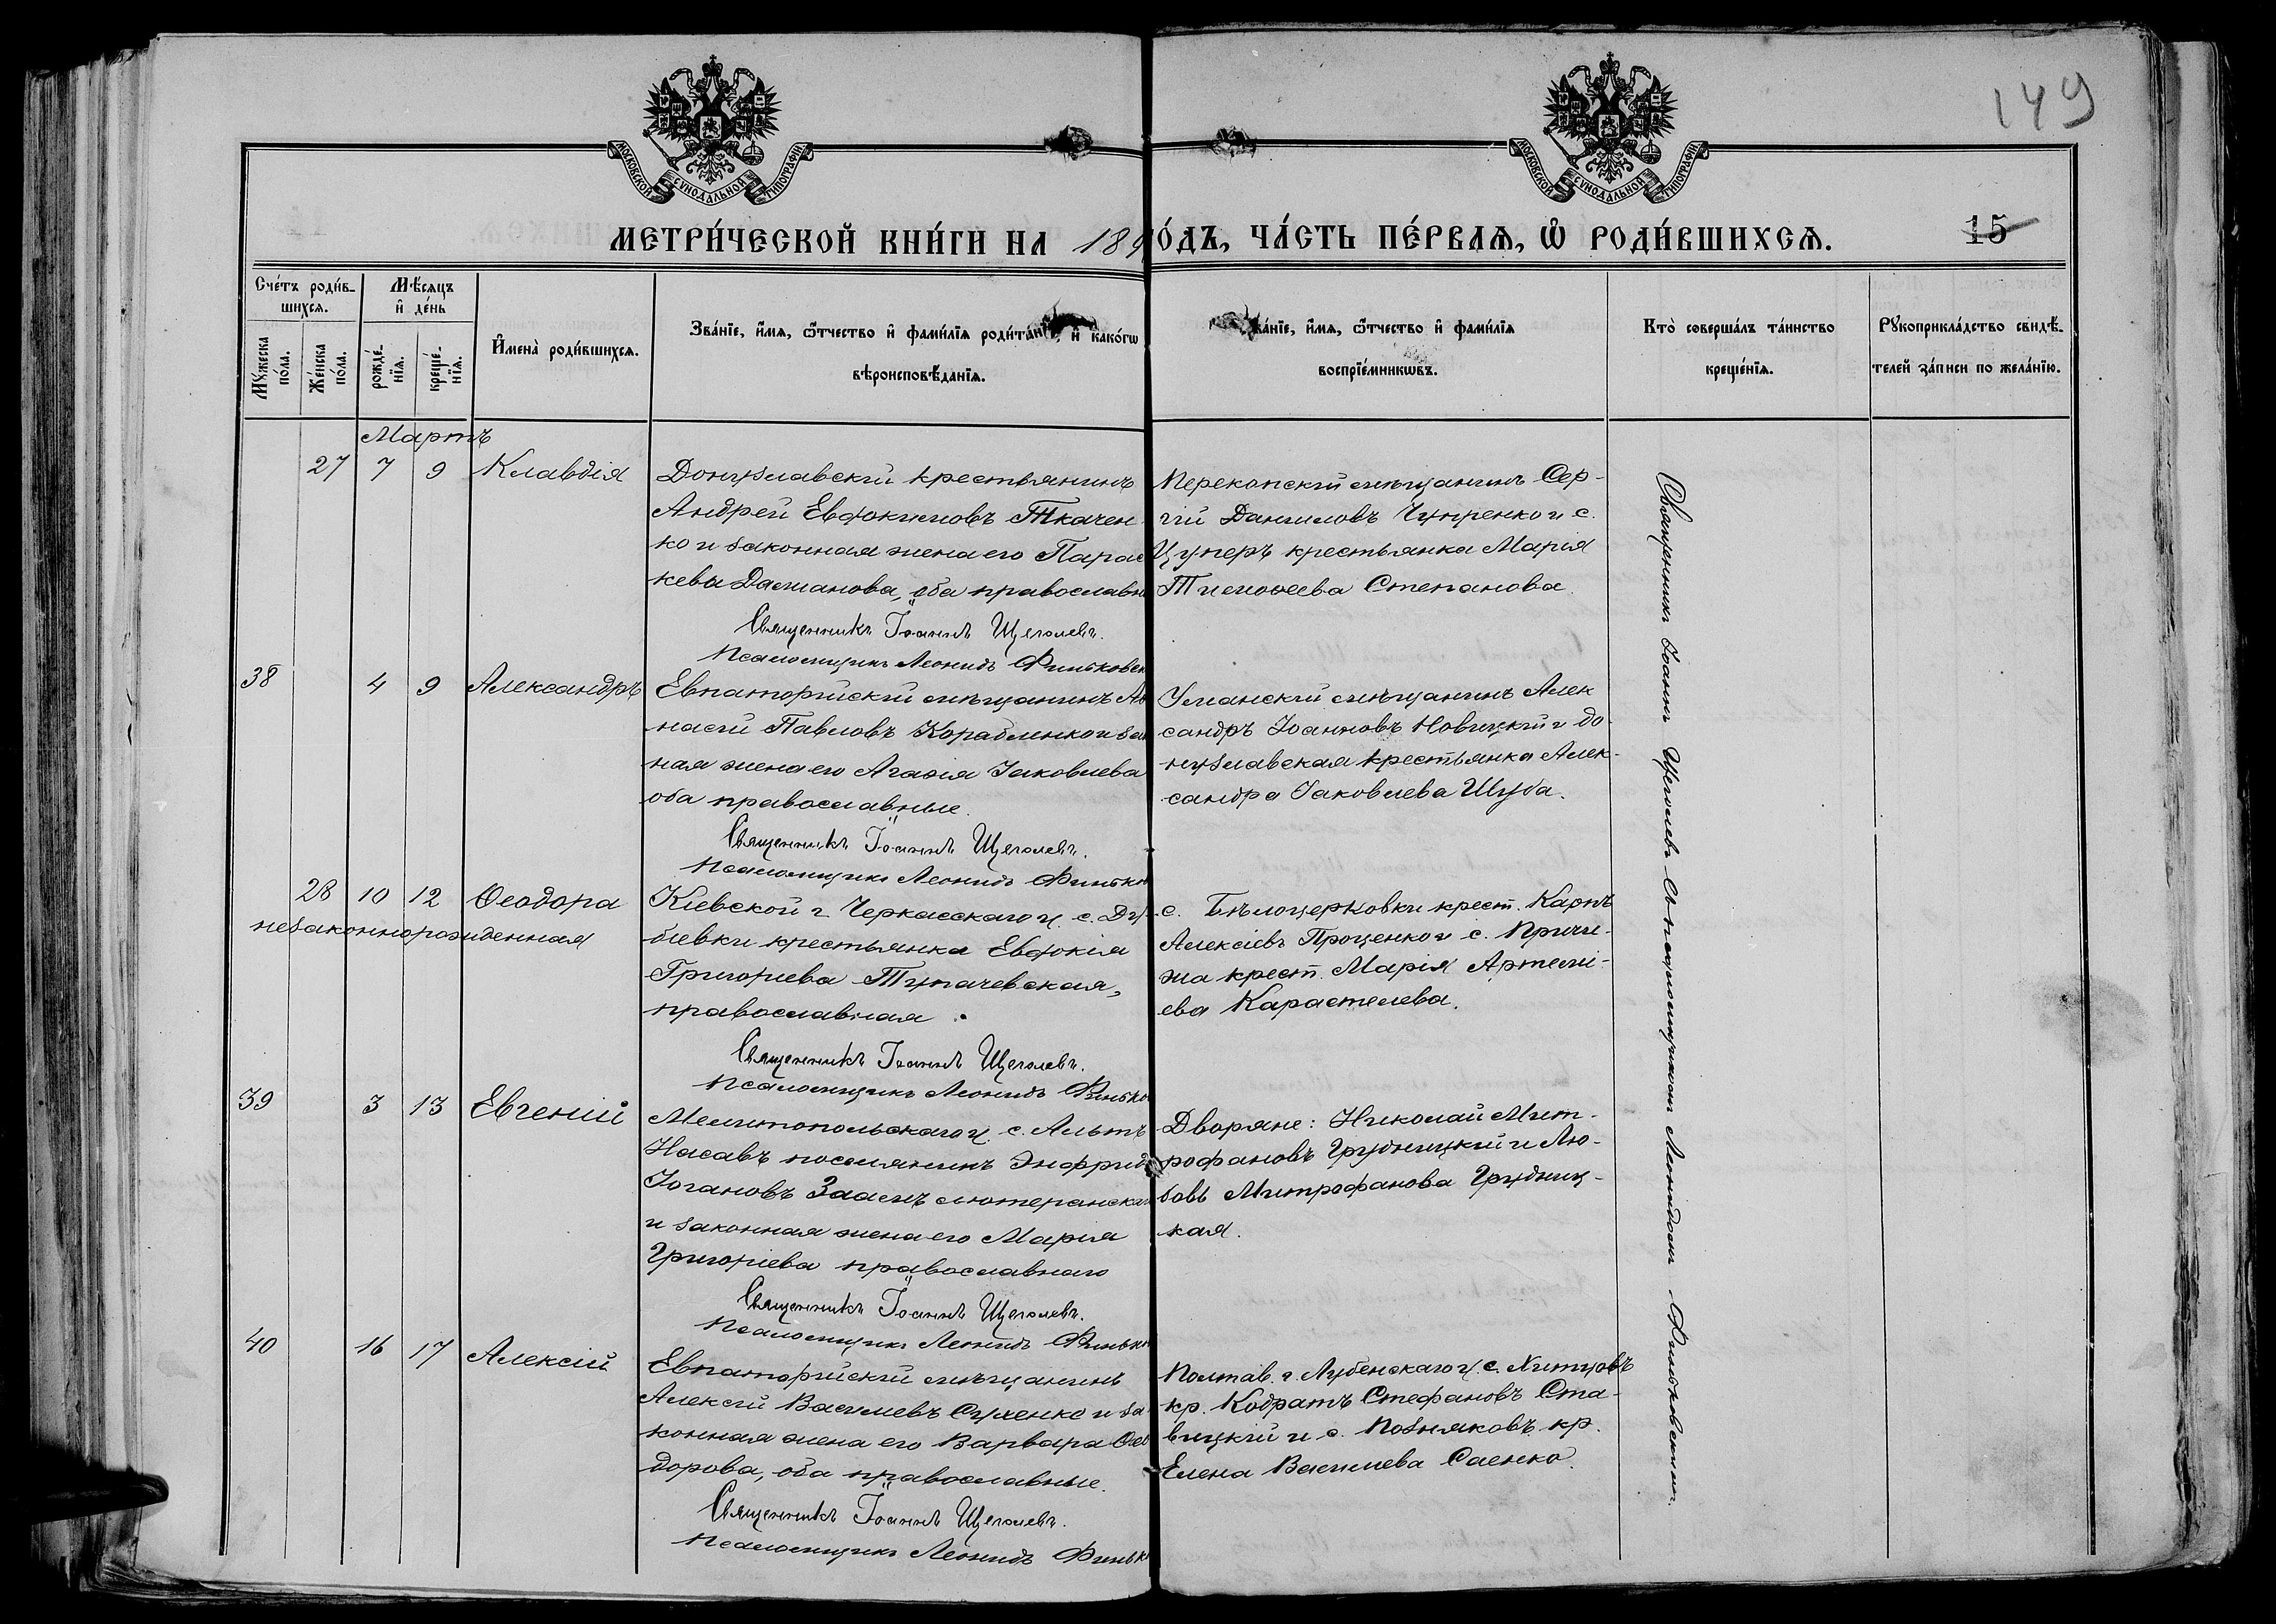 149
МОСКОВСКОЙ СУНОДАЛЬНОЙ ТИПОГРАФІИ
МОСКОВСКОЙ СУНОДАЛЬНОЙ ТИПОГРАФІИ
МЕТРИ́ЧЕСКОЙ КНИ́ГИ НА 189
О́ДЪ, ЧА́СТЬ ПЕ́РВАѦ, Ѡ҆ РОДИ́ВШИХСѦ.
15
Сче́тъ роди́в-
шихсѧ.
Мꙋ́жеска по́ла.
Же́нска по́ла.
Мѣ́сѧцъ
и҆ де́нь
рожде́-нїѧ.
креще́-нїѧ.
И҆мена̀ роди́вшихсѧ.
Зва́нїе, и҆́мѧ, ѻ҆́тчество и҆ фами́лїѧ роди́т и҆ како́гѡ
вѣроисповѣ́данїѧ.
ва́нїе, и҆́мѧ, ѻ҆́тчество и҆ фами́лїѧ
воспрїе́мникѡвъ.
Кто̀ соверша́лъ та́инство
креще́нїѧ.
Рꙋкоприкла́дство свидѣ́-
телей за́писи по жела́нїю.
Мартъ
27 7 9 Клавдія
Донузлавскій крестьянинъ
Андрей Евдокимовъ Ткачен
ко и законная жена его Парас
кева Дамианова, оба православн
Священникъ Іоаннъ Щеголевъ.
Псаломщикъ Леонидъ Финьковск
Перекопскій мѣщанинъ Сер-
гій Даниловъ Чупренко и с.
Цуперъ крестьянка Марія
Тимоѳеева Степанова.
38 4 9 Александръ
Евпаторійскій мѣщанинъ Аѳ
насій Павловъ Корабленко и зак
ная жена его Агаѳія Іаковлева
оба православные.
Священникъ Іоаннъ Щеголевъ.
Псаломщикъ Леонидъ Финьков
Уманскій мѣщанинъ Алек
сандръ Іоанновъ Новицкій и до-
нузлавская крестьянка Алек-
сандра Іаковлева Шуба.
28 10 12 Ѳеодора
незаконнорожденная
Кіевской г. Черкасскаго у. с. Ду-
біевки крестьянка Евдокія
Григориева Тупачевская,
православная.
Священникъ Іоаннъ Щеголевъ.
Псаломщикъ Леонидъ Финько
с. Бѣлоцерковки крест. Карпъ
Алексіевъ Проценко и с. Пришы-
жа крест. Марія Артемі-
ева Карастелева.
39 3 13 Евгеній
Мелитопольскаго у. с. Альтъ
Насавъ поселянинъ Энфрид
Іогановъ Заамъ лютеранскаг
и законная жена его Марія
Григоріева православнаго
Священникъ Іоаннъ Щеголевъ.
Псаломщикъ Леонидъ Финько
Дворяне: Николай Мит-
рофановъ Грудницкій и Лю-
бовь Митрофанова Грудниц-
кая.
40 16 17 Алексій
Евпаторійскій мѣщанинъ
Алексій Васильевъ Сущенко и за
конная жена его Варвара Ѳео
дорова, оба православные.
Священникъ Іоаннъ Щеголевъ.
Псаломщикъ Леонидъ Финьк
Полтав. г. Лубенскаго у. с. Хитцовъ
кр. Кодратъ Стефановъ Ста-
вицкій и с. Позняковъ кр.
Елена Васильева Саенко.
Священникъ Іоаннъ Щеголевъ съ псаломщикомъ Леонидомъ Финьковскимъ.